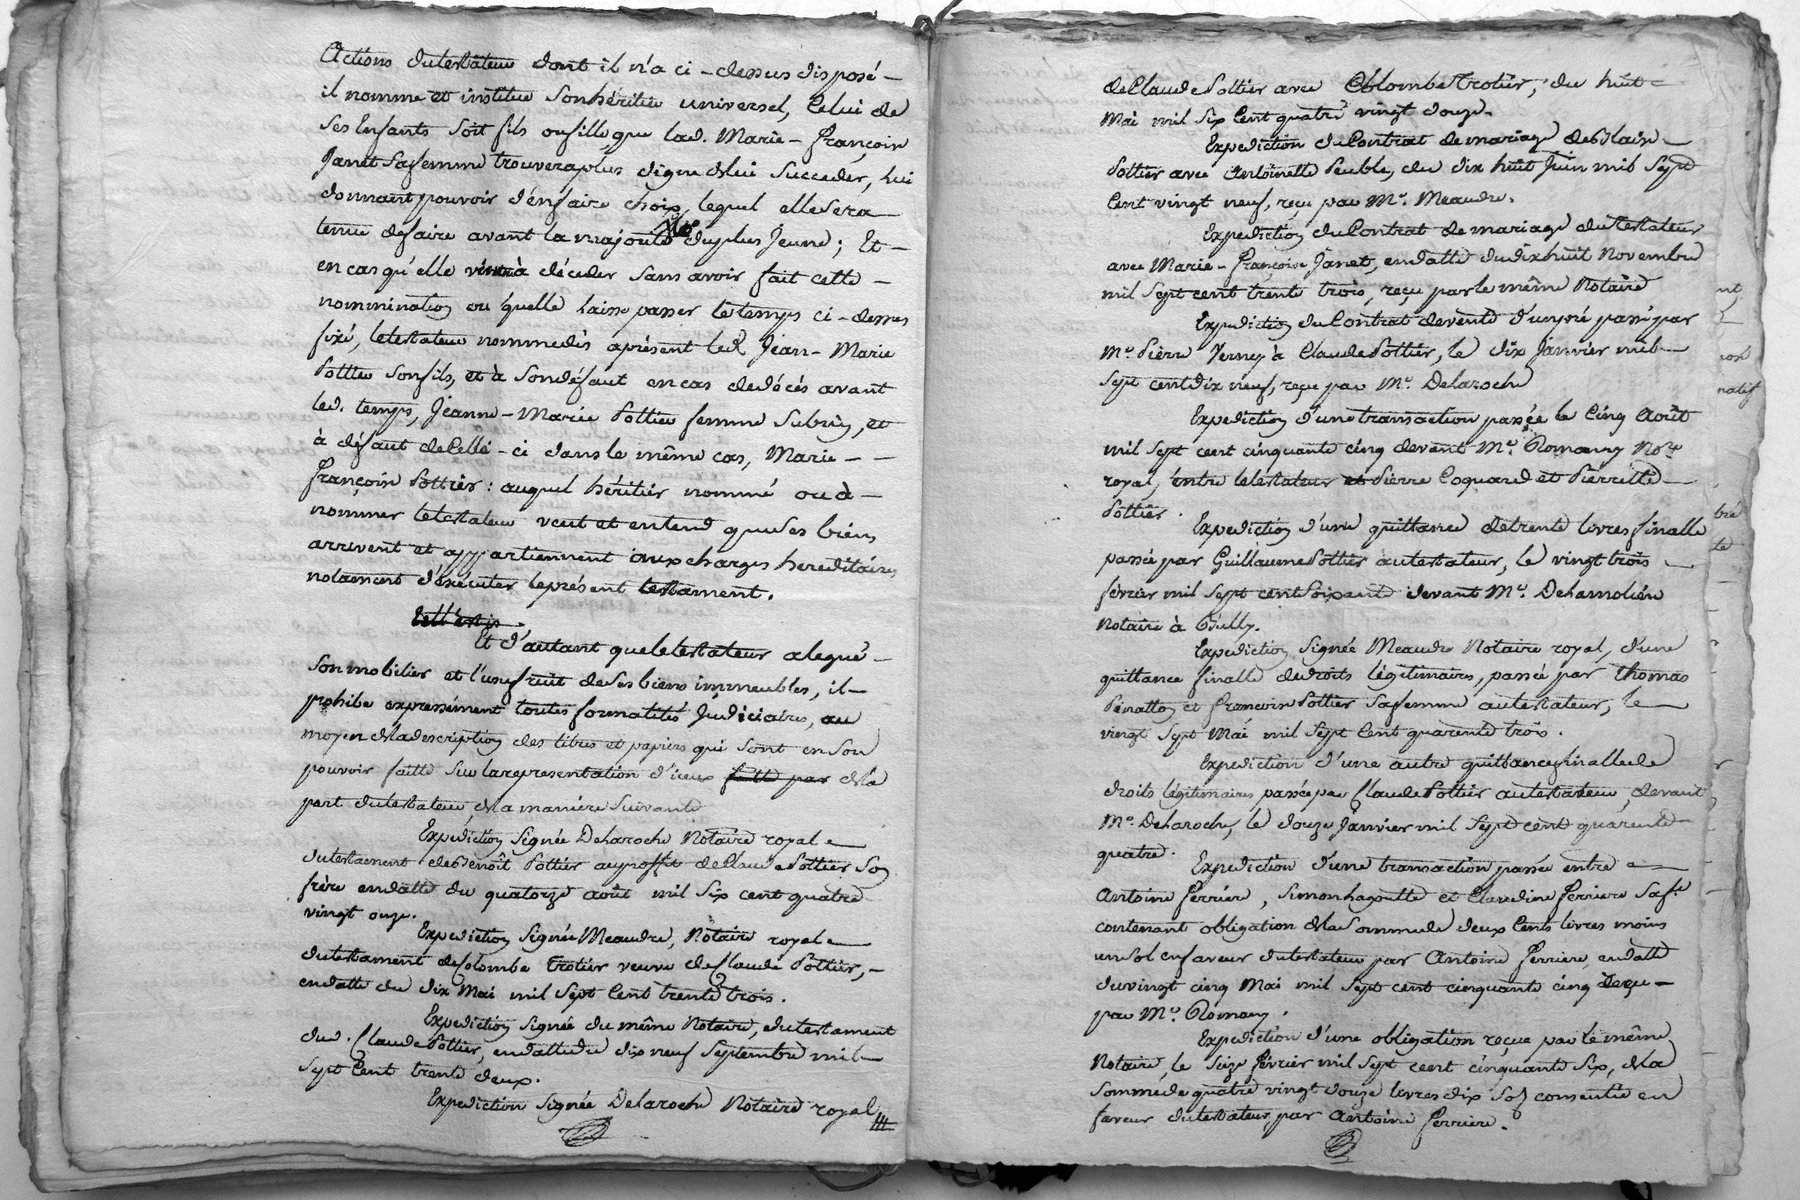 Actions dutestateur dont il n'a ci-dessus disposé-
il nomme et institue Sonhéritier universel, Celui de
Ses Enfants soit fils oufille, que lad. Marie-françoise
Janet Safemme trouveraplus digne delui Succeder, lui
donnant pouvoir d'enfaire choix, lequel ellesera
tenue defaire avant la majorité duplus Jeune; Et-
encasqu'elle vint à décéder sans avoir fait cette-
nommination ou quelle laisse passer letemps ci-dessus
fixé, letestateur nommedès àprésent led. Jean-Marie
Pottier sonfils, et à sondéfaut encas dedécés avant
led. temps, Jeanne-Marie Pottier femme Subrin, et
à défaut deCelle-ci dansle même cas, Marie--
françoise Pottier: auquel héritier nommé ou à-
nommer letestateur veut et entend queses biens
arrivent et appartiennent aux charges hereditaires
notament d'exécuter leprésent testament.
Et d'autant queletestateur alegué-
Sonmobilier et l'usufruit desesbiens immeubles, il-
prohibe expressément toutes formalités Judiciaires, au
moyen deladescription des titres et papiers qui sont enson
pouvoir faitte sur larepresentation d'iceux faitte par dela
part dutestateur, dela manière suivante
Expedition Signée Delaroche Notaire royal
dutestament de Benoît Pottier auproffit deClaude Pottier Son
frère endatte du quatorze août mil six cent quatre
vingt onze.
Expedition Signée Meaudre, Notaire royal
dutestament deColombe Trotier veuve deClaude Pottier,-
endatte du dix Mai mil sept Cent trente trois.
Expedition Signée du même Notaire, dutestament
dud. Claude Pottier, endatte du dix neuf Septembre mil
sept Cent trente deux.
Expedition Signée Delaroche Notaire royal
deClaude Pottier avec Colombe Trotier, du huit
Mai mil six Cent quatre vingt douze.
Expedition duContrat de mariage deBlaise
Pottier avec Antoinette Peuble, du dix huit Juin mil sept
Cent vingt neuf, reçu par Me. Meaudre.
Expedition duContrat de mariage dutestateur
avec Marie-françoise Janet, endatte dudixhuit Novembre
mil sept cent trente trois, reçu parle même Notaire
Expedition duContrat devente d'unpré passé par
Me. Pierre Verney à Claude Pottier, le dix Janvier mil
sept cent dix neuf, reçu par Me. Delaroche
Expedition d'une transaction passée le Cinq Août
mil sept cent cinquante cinq devant Me. Romany Nore
royal, entre letestateur et Pierre Coquard et Pierrette
Pottier.
Expedition d'une quittance detrente livres finalle
passée par Guillaume Pottier autestateur, le vingt trois
février mil sept cent soixante devant Me. Dehamolien
Notaire à Bully.
Expedition Signée Meaudre Notaire royal, d'une
quittance finalle dedroits légitimaires, passée par thomas
Penatton et françoise Pottier Safemme autestateur, le
vingt sept Mai mil sept Cent quarente trois.
Expedition d'une autre quittance finallede
droits légitimaires passée par Claude Pottier autestateur, devant
Me. Delaroche, le douze Janvier mil sept cent quarente
quatre.
Expedition d'une transaction passée entre
Antoine ferriere, Simon hagoutte et Claudine ferriere Safe
contenant obligation dela Sommede deux Cents livres moins
unsol enfaveur dutestateur par Antoine ferriere, endatte
duvingt cinq Mai mil sept cent cinquante cinq reçue
par Me. Romany.
Expedition d'une obligation reçue par le même
Notaire, le seize février mil sept cent cinquante six, dela
Sommede quatre vingt douze livres dix Sols consentie en
faveur dutestateur, par Antoine ferriere.